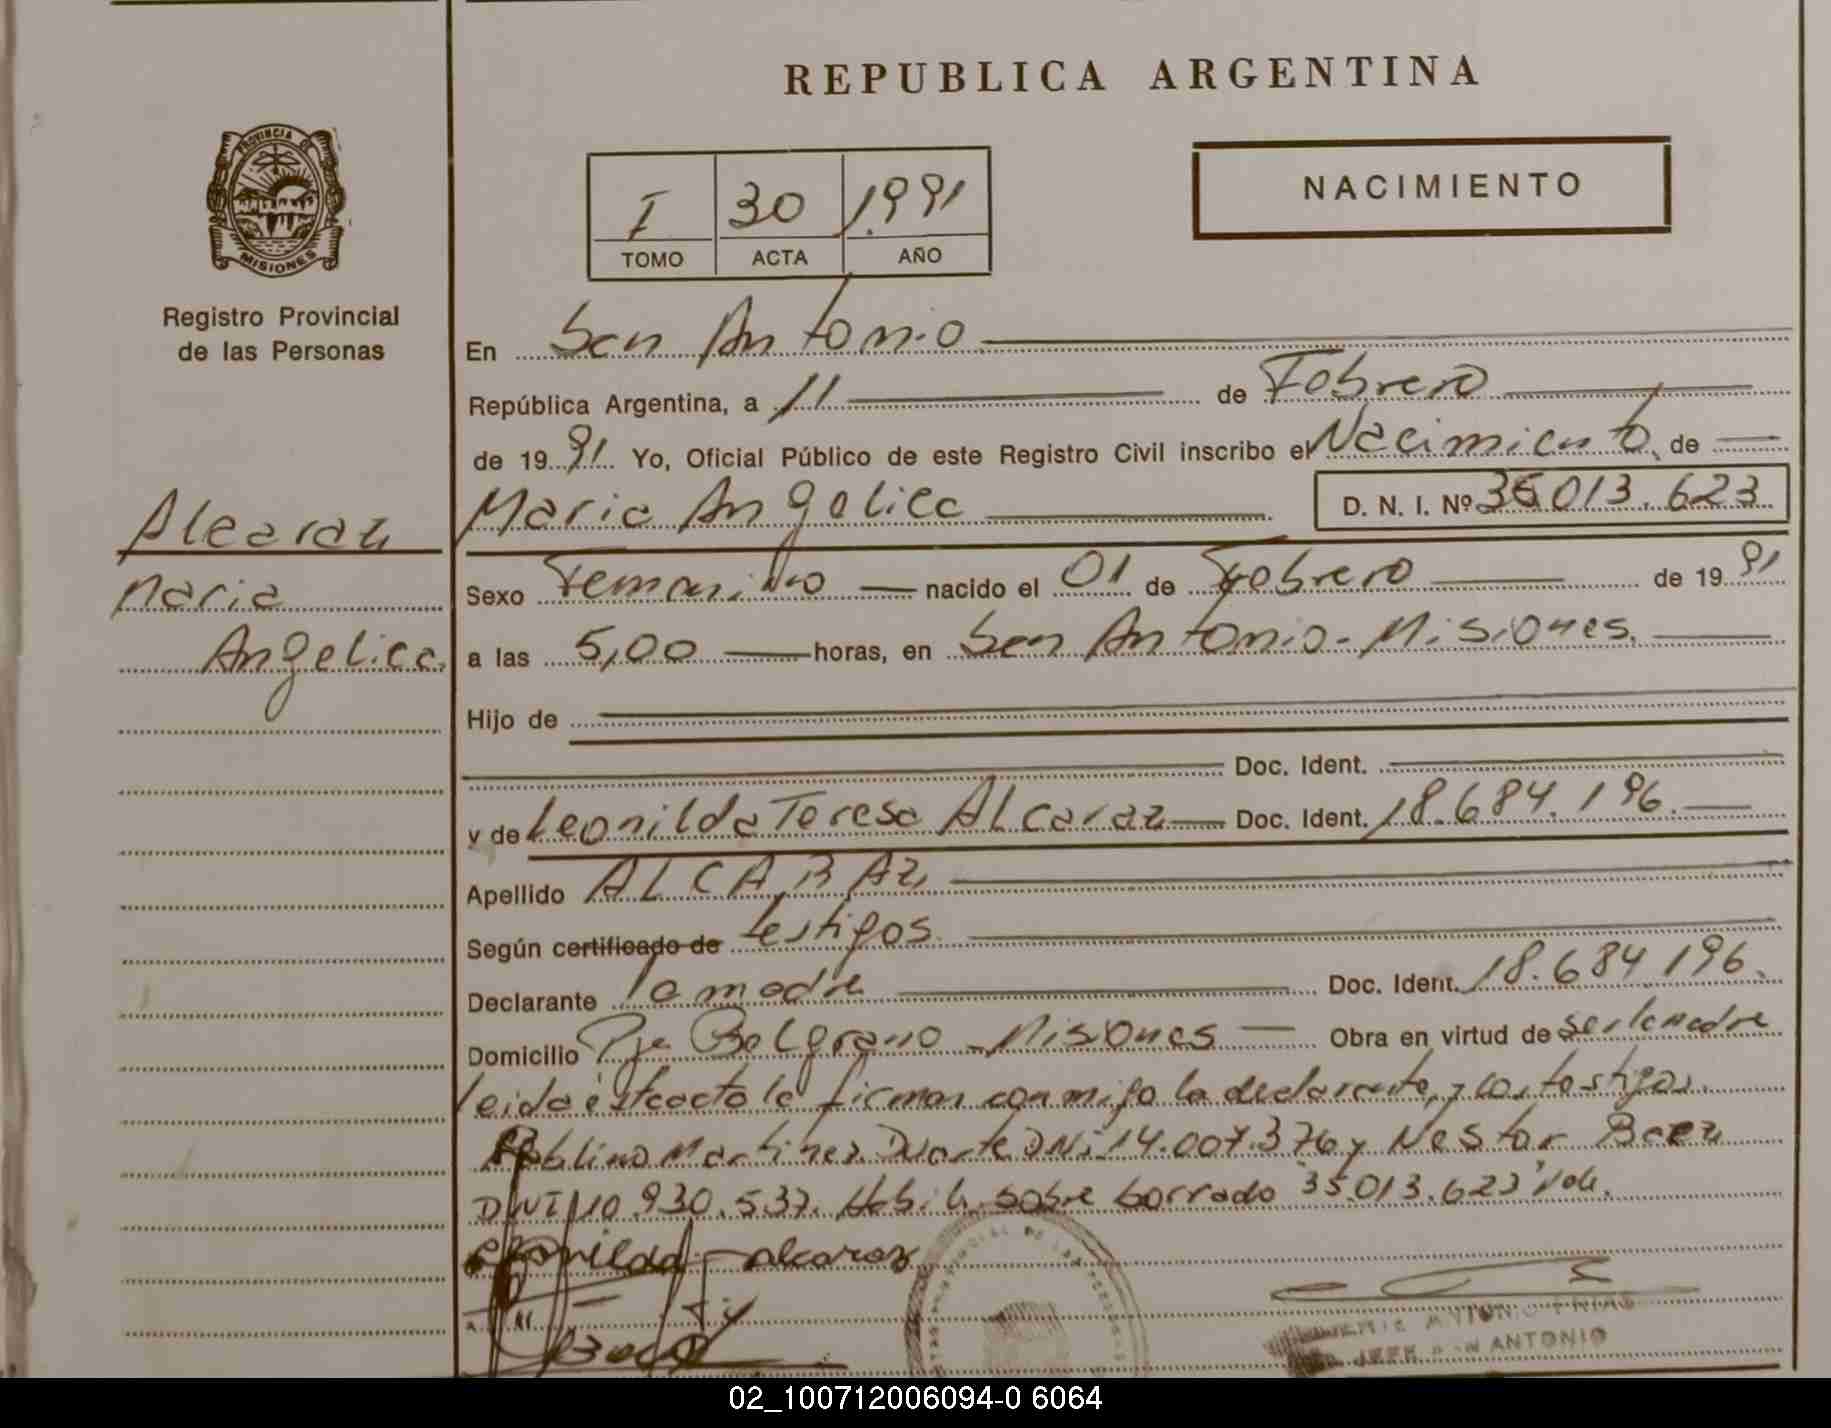 REPUBLICA ARGENTINA
PROVINCIA DE
MISIONES
Registro Provincial
de las Personas
I 30 1991
TOMO ACTA AÑO
NACIMIENTO
En San Antonio
República Argentina, a 11 de Febrero
de 1991 Yo, Oficial Público de este Registro Civil inscribo el Nacimiento de
Maria Angelica D. N. I. Nº 35013.623
Alcaraz
Maria
Angelica
Sexo Femenino nacido el 01 de Febrero de 1991
a las 5,00 horas, en San Antonio - Misiones.
Hijo de
Doc. Ident.
y de Leonilda Teresa Alcaraz Doc. Ident. 18.684.196.
Apellido ALCARAZ
Según certificado de testigos.
Declarante la madre Doc. Ident. 18.684196.
Domicilio Pje Belgrano - Misiones Obra en virtud de ser la madre
leida este acta la firman conmigo la declarante, y los testigos.
Martinez Duarte DNI 14.007.376 y Nestor Baez
DNI 10.930.537. sobre borrado 35.013.623 Vale.
Leonilda T Alcaraz
Baez
ANTONIO FRIAS
JEFE SAN ANTONIO
02_100712006094-0 6064